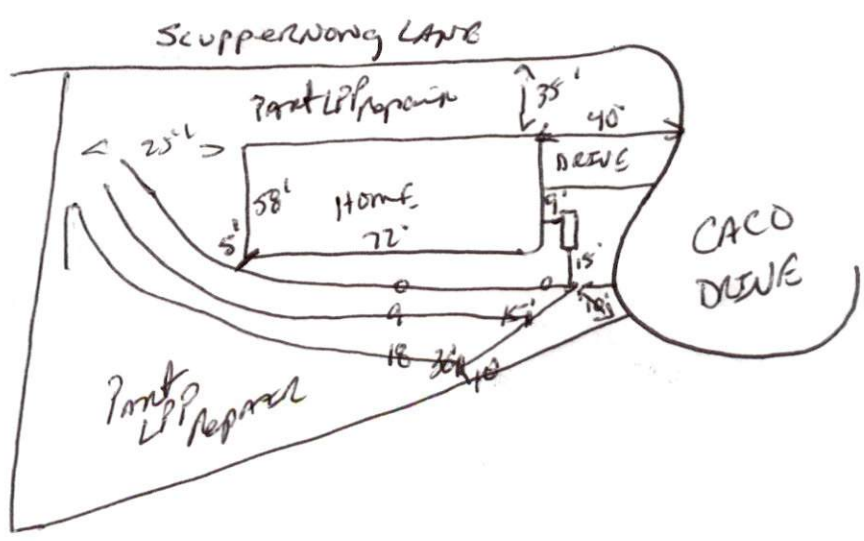 SCUPPERNONG LANE
35'
PART LPP repair
40'
25'
DRIVE
58'
HOME
9'
72'
5'
15'
CACO
DRIVE
0
0
9
15'
10'
18
30'
10
PART
LPP Repair